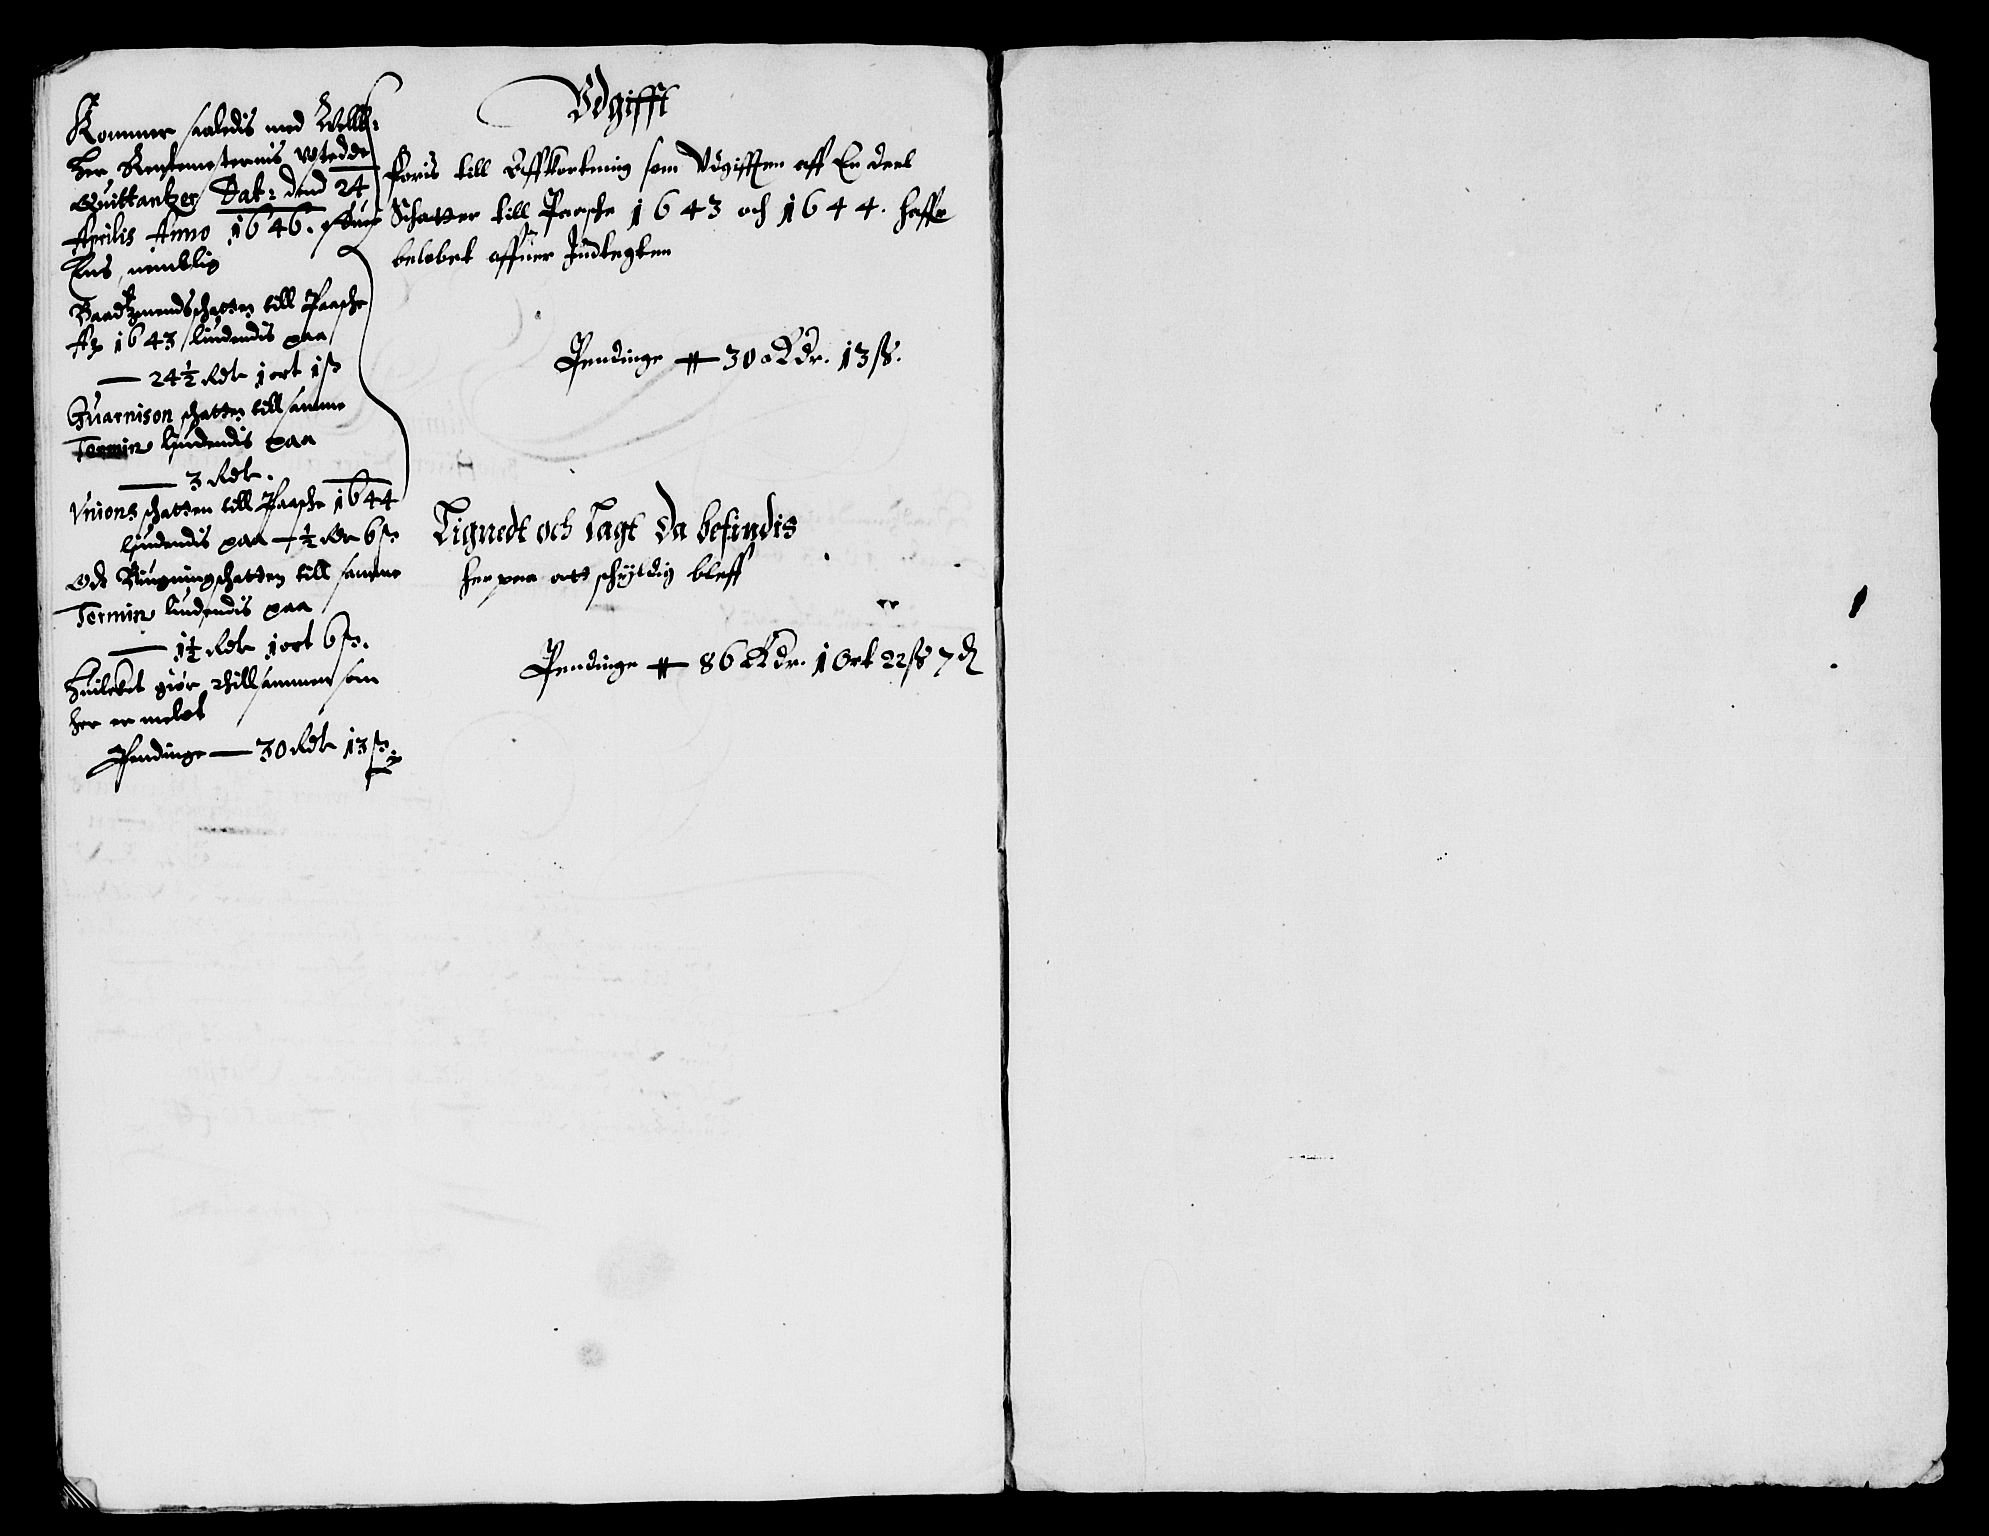 Kommer saaledis med Welb:
her Rentemesternis Vdstedde
Quittantzer Dat: dend 24
Aprilis Anno 1646. offuer
Ens, nemblig
Baadtzmendschatten till Paaske
Ao 1643 liudendis paa
— 24½ Rdr 1 ort 1 ß
Guarnison schatten till samme
Termin liudendis paa
— 3 Rdr.
Vnions schatten till Paaske 1644
liudendis paa — ½ Rdr 6 ß
Och Bÿgningschatten till samme
Termin liudendis paa
— 1½ Rdr 1 ort 6 ß.
huilcket giør thillsammen som
her er meldt
Pendinge — 30 Rdr 13 ß.
Vdgifft
Føris till Affkortning som Vdgifften aff En deel
Schatter till Paaske 1643 och 1644. haffr
beløbet offuer Indtegten
Pendinge — 30 Rdr. 13 ß.
Lignedt och Lagt Da befindis
her paa att schÿldig bleff
Pendinge — 86 Rdr. 1 Ort 22 ß 7 d